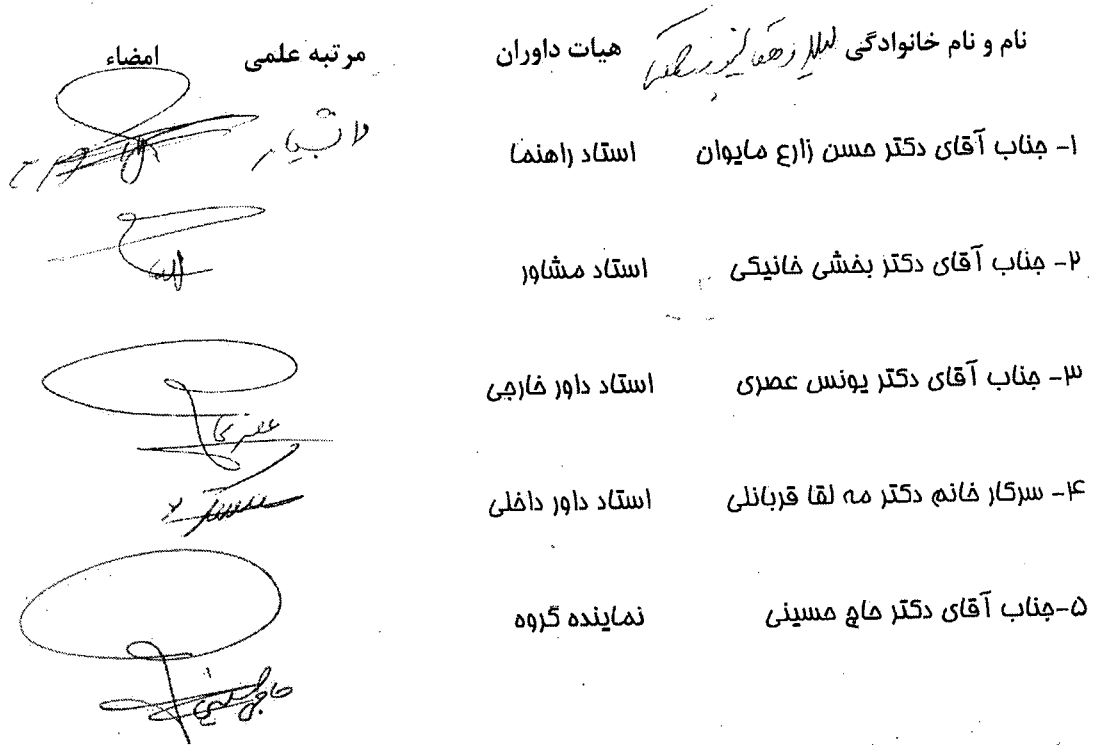 نام و نام خانوادگی هیات داوران مرتبه علمی امضاء
۱- جناب آقای دکتر حسن زارع مایوان استاد راهنما دانشیار
۲- جناب آقای دکتز بخشی خانیکی استاد مشاور
۳- جناب آقای دکتر یونس عصری استاد داور خارجی
عصری
۴- سرکار خانم دکتر مه لقا قربانلی استاد داور داخلی
۵-جناب آقای دکتر حاج حسینی نماینده گروه